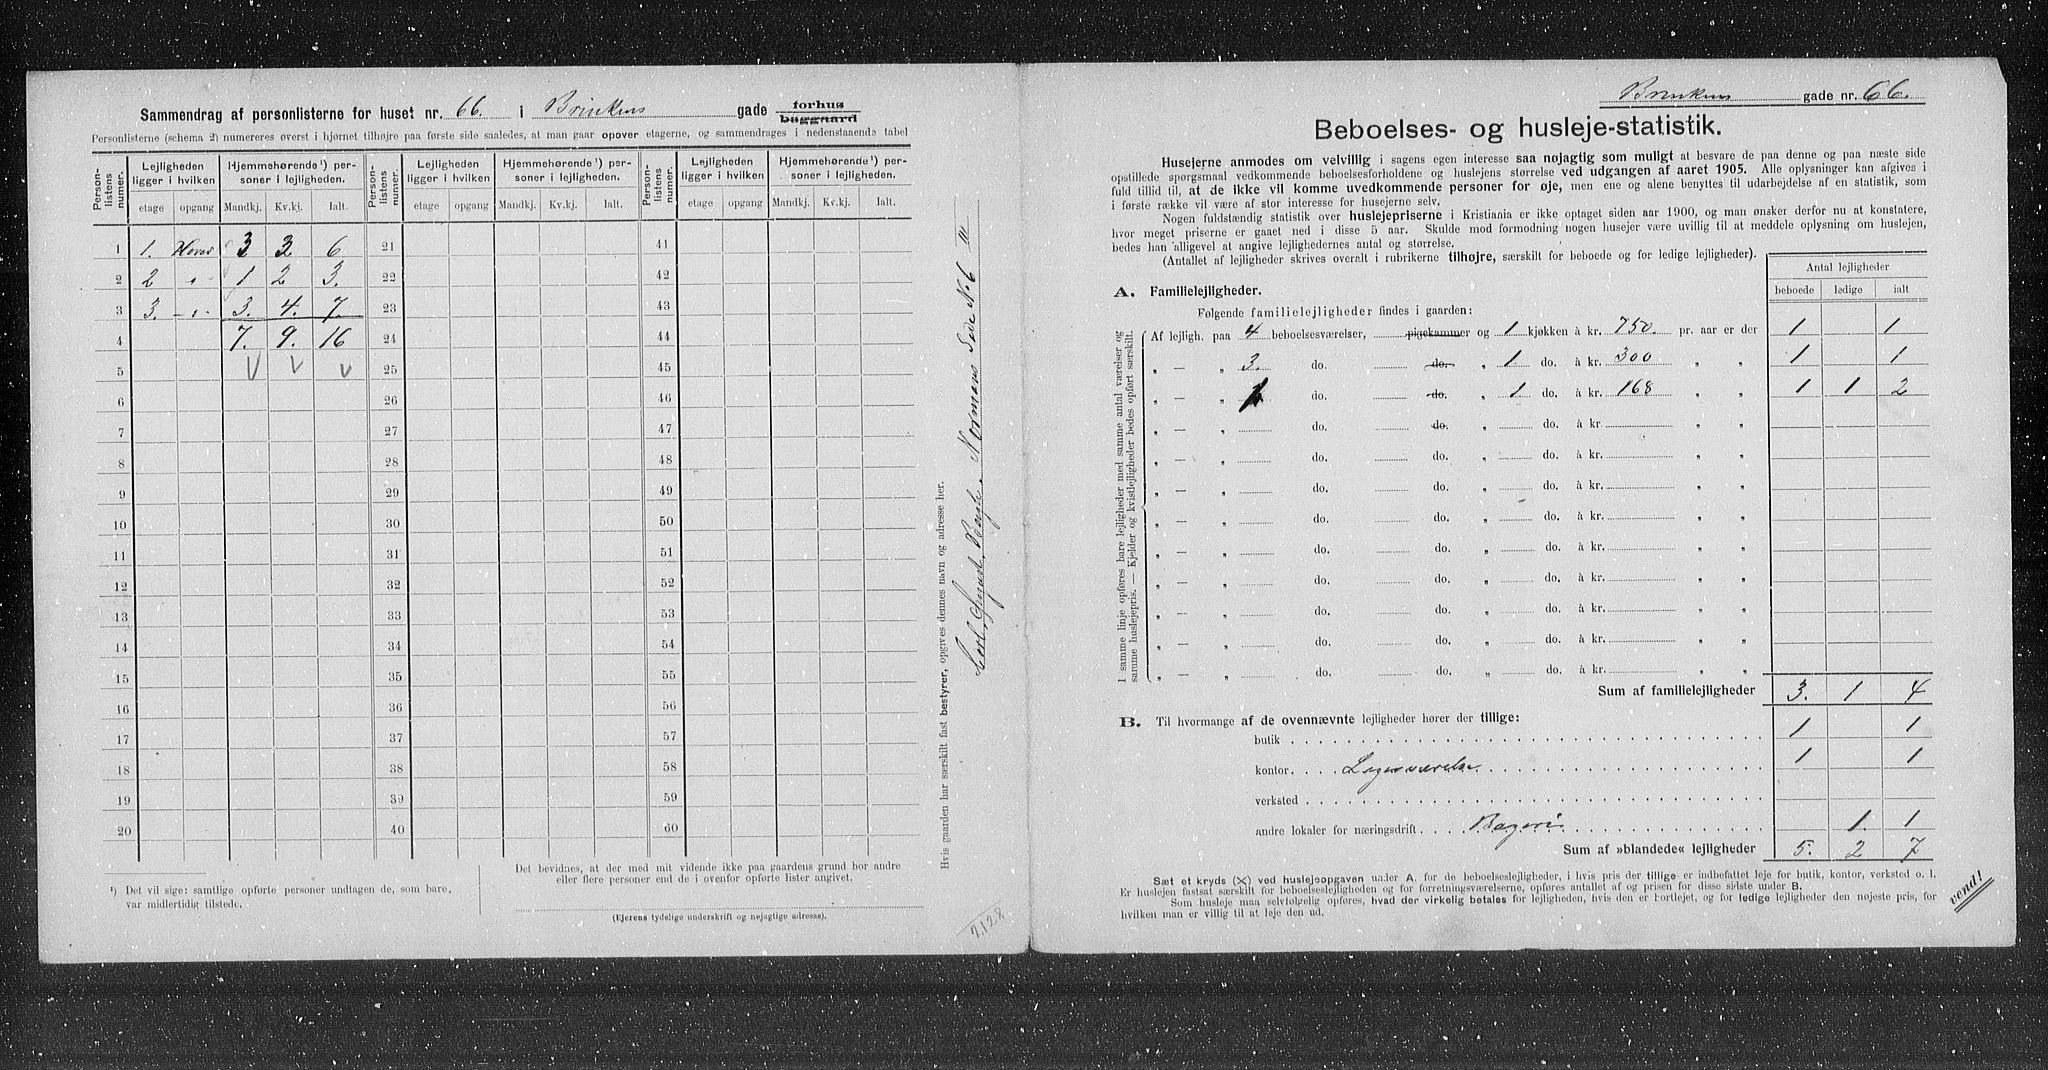 Sammendrag af personlisterne for huset nr. 66. i Brinkens gade forhus baggaard
Personlisterne (schema 2) numereres øverst i hjørnet tilhøjre paa første side saaledes, at man gaar opover etagerne, og sammendrages i nedenstaaende tabel
Personlistens numer. Lejligheden ligger i hvilken Hjemmehørende¹) personer i lejligheden. Personlistens numer. Lejligheden ligger i hvilken Hjemmehørende¹) personer i lejligheden. Personlistens numer. Lejligheden ligger i hvilken Hjemmehørende¹) personer i lejligheden.
etage opgang Mandkj. Kv.kj. Ialt. etage opgang Mandkj. Kv.kj. Ialt. etage opgang Mandkj. Kv.kj. Ialt.
1 1. 3 3 6 21 41
2 2 " 1 2 3. 22 42
3 3. -"- 3. 4. 7. 23 43
4 7. 9. 16 24 44
5 V V V 25 45
6 26 46
7 27 47
8 28 48
9 29 49
10 30 50
11 31 51
12 32 52
13 33 53
14 34 54
15 35 55
16 36 56
17 37 57
18 38 58
19 39 59
20 40 60
¹) Det vil sige: samtlige opførte personer undtagen de, som bare.
var midlertidig tilstede.
Det bevidnes, at der med mit vidende ikke paa gaardens grund bor andre
eller flere personer end de i ovenfor opførte lister angivet.
(Ejerens tydelige underskrift og nøjagtige adresse).
Hvis gaarden har særskilt fast bestyrer, opgives dennes navn og adresse her.
Normans Gade No 6
2128
Brinkens gade nr. 66.
Beboelses- og husleje-statistik.
Husejerne anmodes om velvillig i sagens egen interesse saa nøjagtig som muligt at besvare de paa denne og paa næste side
opstillede spørgsmaal vedkommende beboelsesforholdene og huslejens størrelse ved udgangen af aaret 1905. Alle oplysninger kan afgives i
fuld tillid til, at de ikke vil komme uvedkommende personer for øje, men ene og alene benyttes til udarbejdelse af en statistik, som
i første række vil være af stor interesse for husejerne selv.
Nogen fuldstændig statistik over huslejepriserne i Kristiania er ikke optaget siden aar 1900, og man ønsker derfor nu at konstatere,
hvor meget priserne er gaaet ned i disse 5 aar. Skulde mod formodning nogen husejer være uvillig til at meddele oplysning om huslejen,
bedes han alligevel at angive lejlighedernes antal og størrelse.
(Antallet af lejligheder skrives overalt i rubrikerne tilhøjre, særskilt for beboede og for ledige lejligheder).
Antal lejligheder
beboede ledige ialt
A. Familielejligheder.
Følgende familielejligheder findes i gaarden:
I samme linje opføres bare lejligheder med samme antal værelser og
samme huslejepris. — Kjelder og kvistlejligheder bedes opført særskilt.
Af lejligh. paa 4 beboelsesværelser, pigekammer og 1 kjøkken à kr. 750. pr. aar er der 1 1
„ — „ 3. do. do. „ 1 do. à kr. 300 „ „ 1 1
„ — „ 1 do. do. „ 1 do. à kr. 168 „ „ 1 1 2
„ — „ do. do. „ do. à kr. „ „
„ — „ do. do. „ do. à kr. „ „
„ — „ do. do. „ do. à kr. „ „
„ — „ do. do. „ do. à kr. „ „
„ — „ do. do. „ do. à kr. „ „
„ — „ do. do. „ do. à kr. „ „
„ — „ do. do. „ do. à kr. „ „
„ — „ do. do. „ do. à kr. „ „
„ — „ do. do. „ do. à kr. „ „
Sum af familielejligheder 3. 1 4
B. Til hvormange af de ovennævnte lejligheder hører der tillige:
butik 1 1
kontor. Lagerværelse 1 1
verksted
andre lokaler for næringsdrift Bageri 1. 1
Sum af »blandede« lejligheder 5. 2 7
Sæt et kryds (X) ved huslejeopgaven under A. for de beboelseslejligheder, i hvis pris der tillige er indbefattet leje for butik, kontor, verksted o. l.
Er huslejen fastsat særskilt for beboelseslejligheden og for forretningsværelserne, opføres antallet af og prisen for disse sidste under B.
Som husleje maa selvfølgelig opføres, hvad der virkelig betales for lejligheden, hvis den er bortlejet, og for ledige lejligheder den nøjeste pris, for
hvilken man er villig til at leje den ud.
vend!